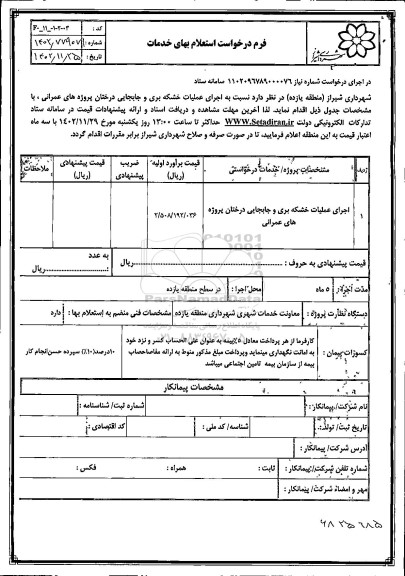 فرم درخواست استعلام بهای خدمات
کد :
شماره : ۱۴۰۲/۷۷۹۰۷
تاریخ : ۱۴۰۲/۱۱/۲۵
در اجرای درخواست شماره نیاز ۱۱۰۲۰۹۶۷۸۹۰۰۰۰۷۶ سامانه ستاد
شهرداری شیراز (منطقه یازده) در نظر دارد نسبت به اجرای عملیات خشکه بری و جابجایی درختان پروژه های عمرانی ، با
مشخصات جدول ذیل اقدام نماید. لذا آخرین مهلت مشاهده و دریافت اسناد و ارائه پیشنهادات قیمت در سامانه ستاد
تدارکات الکترونیکی دولت www.Setadiran.ir حداکثر تا ساعت ۱۳:۰۰ روز یکشنبه مورخ ۱۴۰۲/۱۱/۲۹ با سه ماه
اعتبار قیمت به این منطقه اعلام فرمایید، تا در صورت صرفه و صلاح شهرداری شیراز برابر مقررات اقدام گردد.
ردیف مشخصات پروژه/ خدمات درخواستی قیمت برآورد اولیه (ریال) ضریب پیشنهادی قیمت پیشنهادی (ریال) ملاحظات
۱ اجرای عملیات خشکه بری و جابجایی درختان پروژه های عمرانی ۲/۵۰۸/۱۹۲/۰۳۶
قیمت پیشنهادی به حروف : ریال به عدد : ریال
مدت اجرا : ۵ ماه محل اجرا : در سطح منطقه یازده
دستگاه نظارت پروژه : معاونت خدمات شهری شهرداری منطقه یازده مشخصات فنی منضم به استعلام بها : دارد
کسورات پیمان : کارفرما از هر پرداخت معادل ۵٪بیمه به عنوان علی الحساب کسر و نزد خود
به امانت نگهداری مینماید وپرداخت مبلغ مذکور منوط به ارائه مفاصاحساب
بیمه از سازمان بیمه تامین اجتماعی میباشد
۱۰درصد(۱۰٪) سپرده حسن انجام کار
مشخصات پیمانکار
نام شرکت/ پیمانکار : شماره ثبت/ شناسنامه :
تاریخ ثبت/ تولد : شناسه/ کد ملی : کد اقتصادی :
آدرس شرکت/ پیمانکار :
شماره تلفن شرکت/ پیمانکار : ثابت : همراه : فکس :
مهر و امضاء شرکت/ پیمانکار :